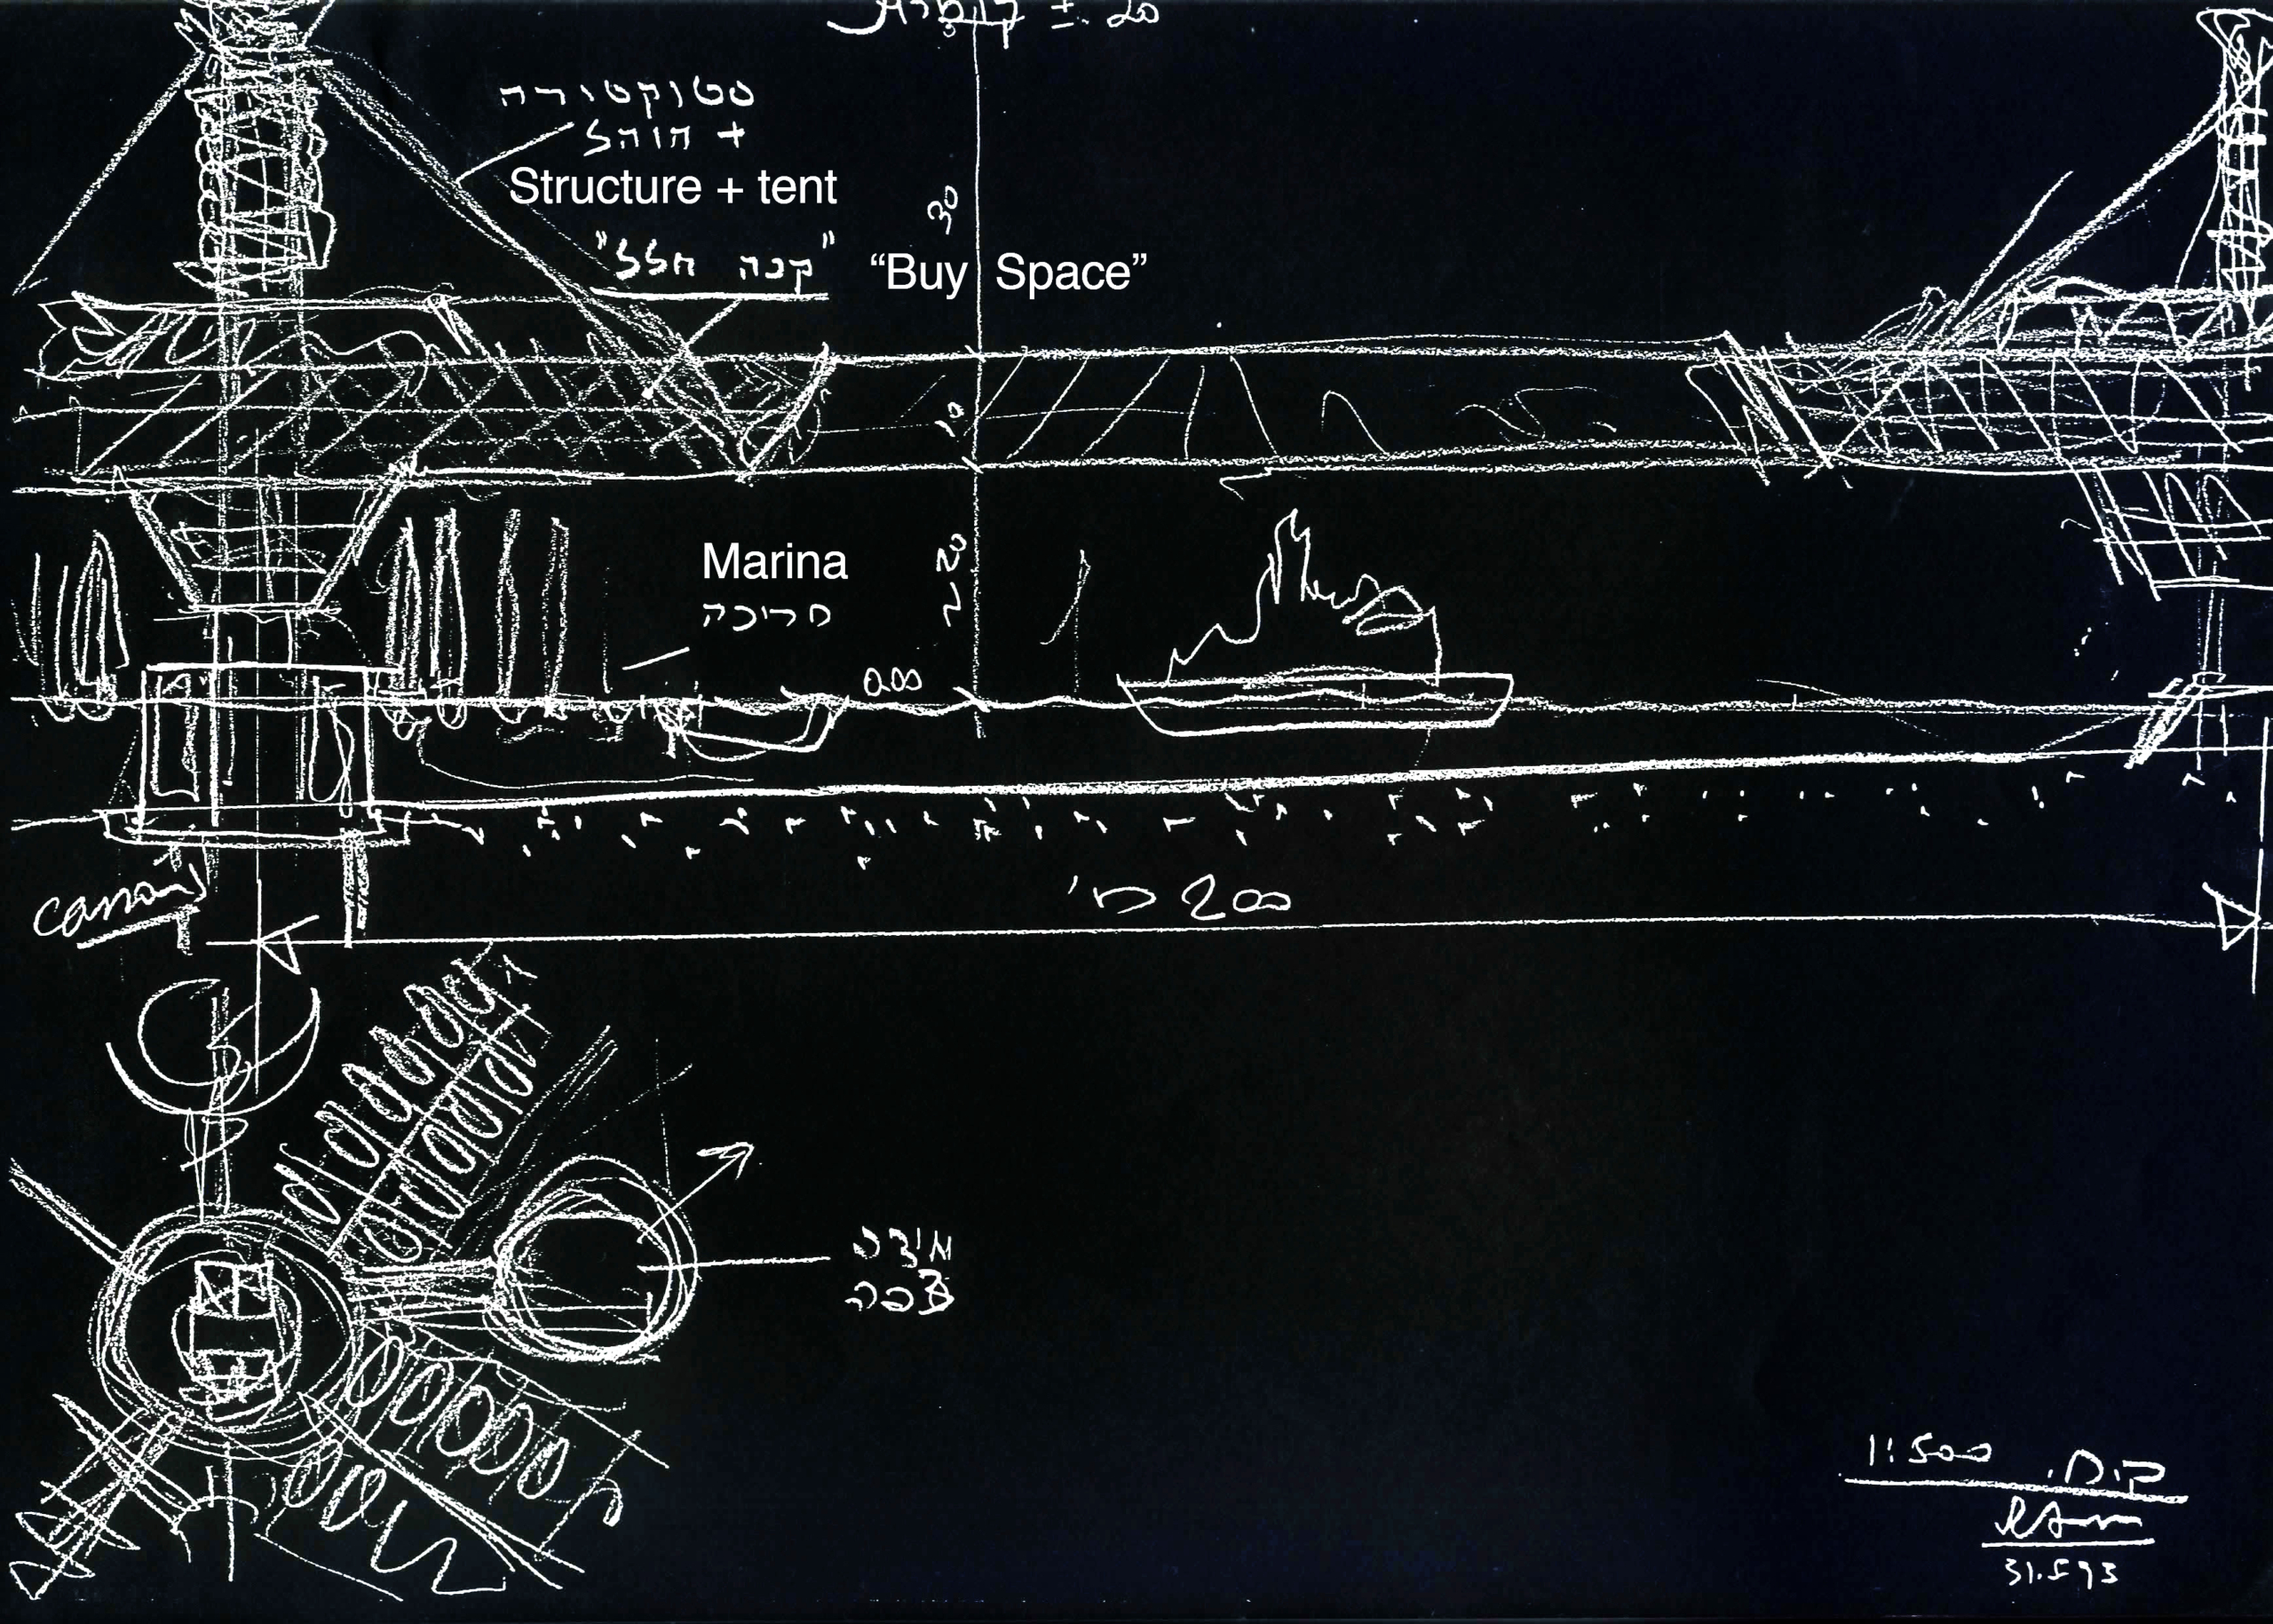 ± 20
סטרוקטורה
+ אוהל
Structure + tent
"קנה חלל"
“Buy Space”
30
10
Marina
מרינה
~ 20
0.00
200 מ'
1:500 ק.מ.
31.5 93